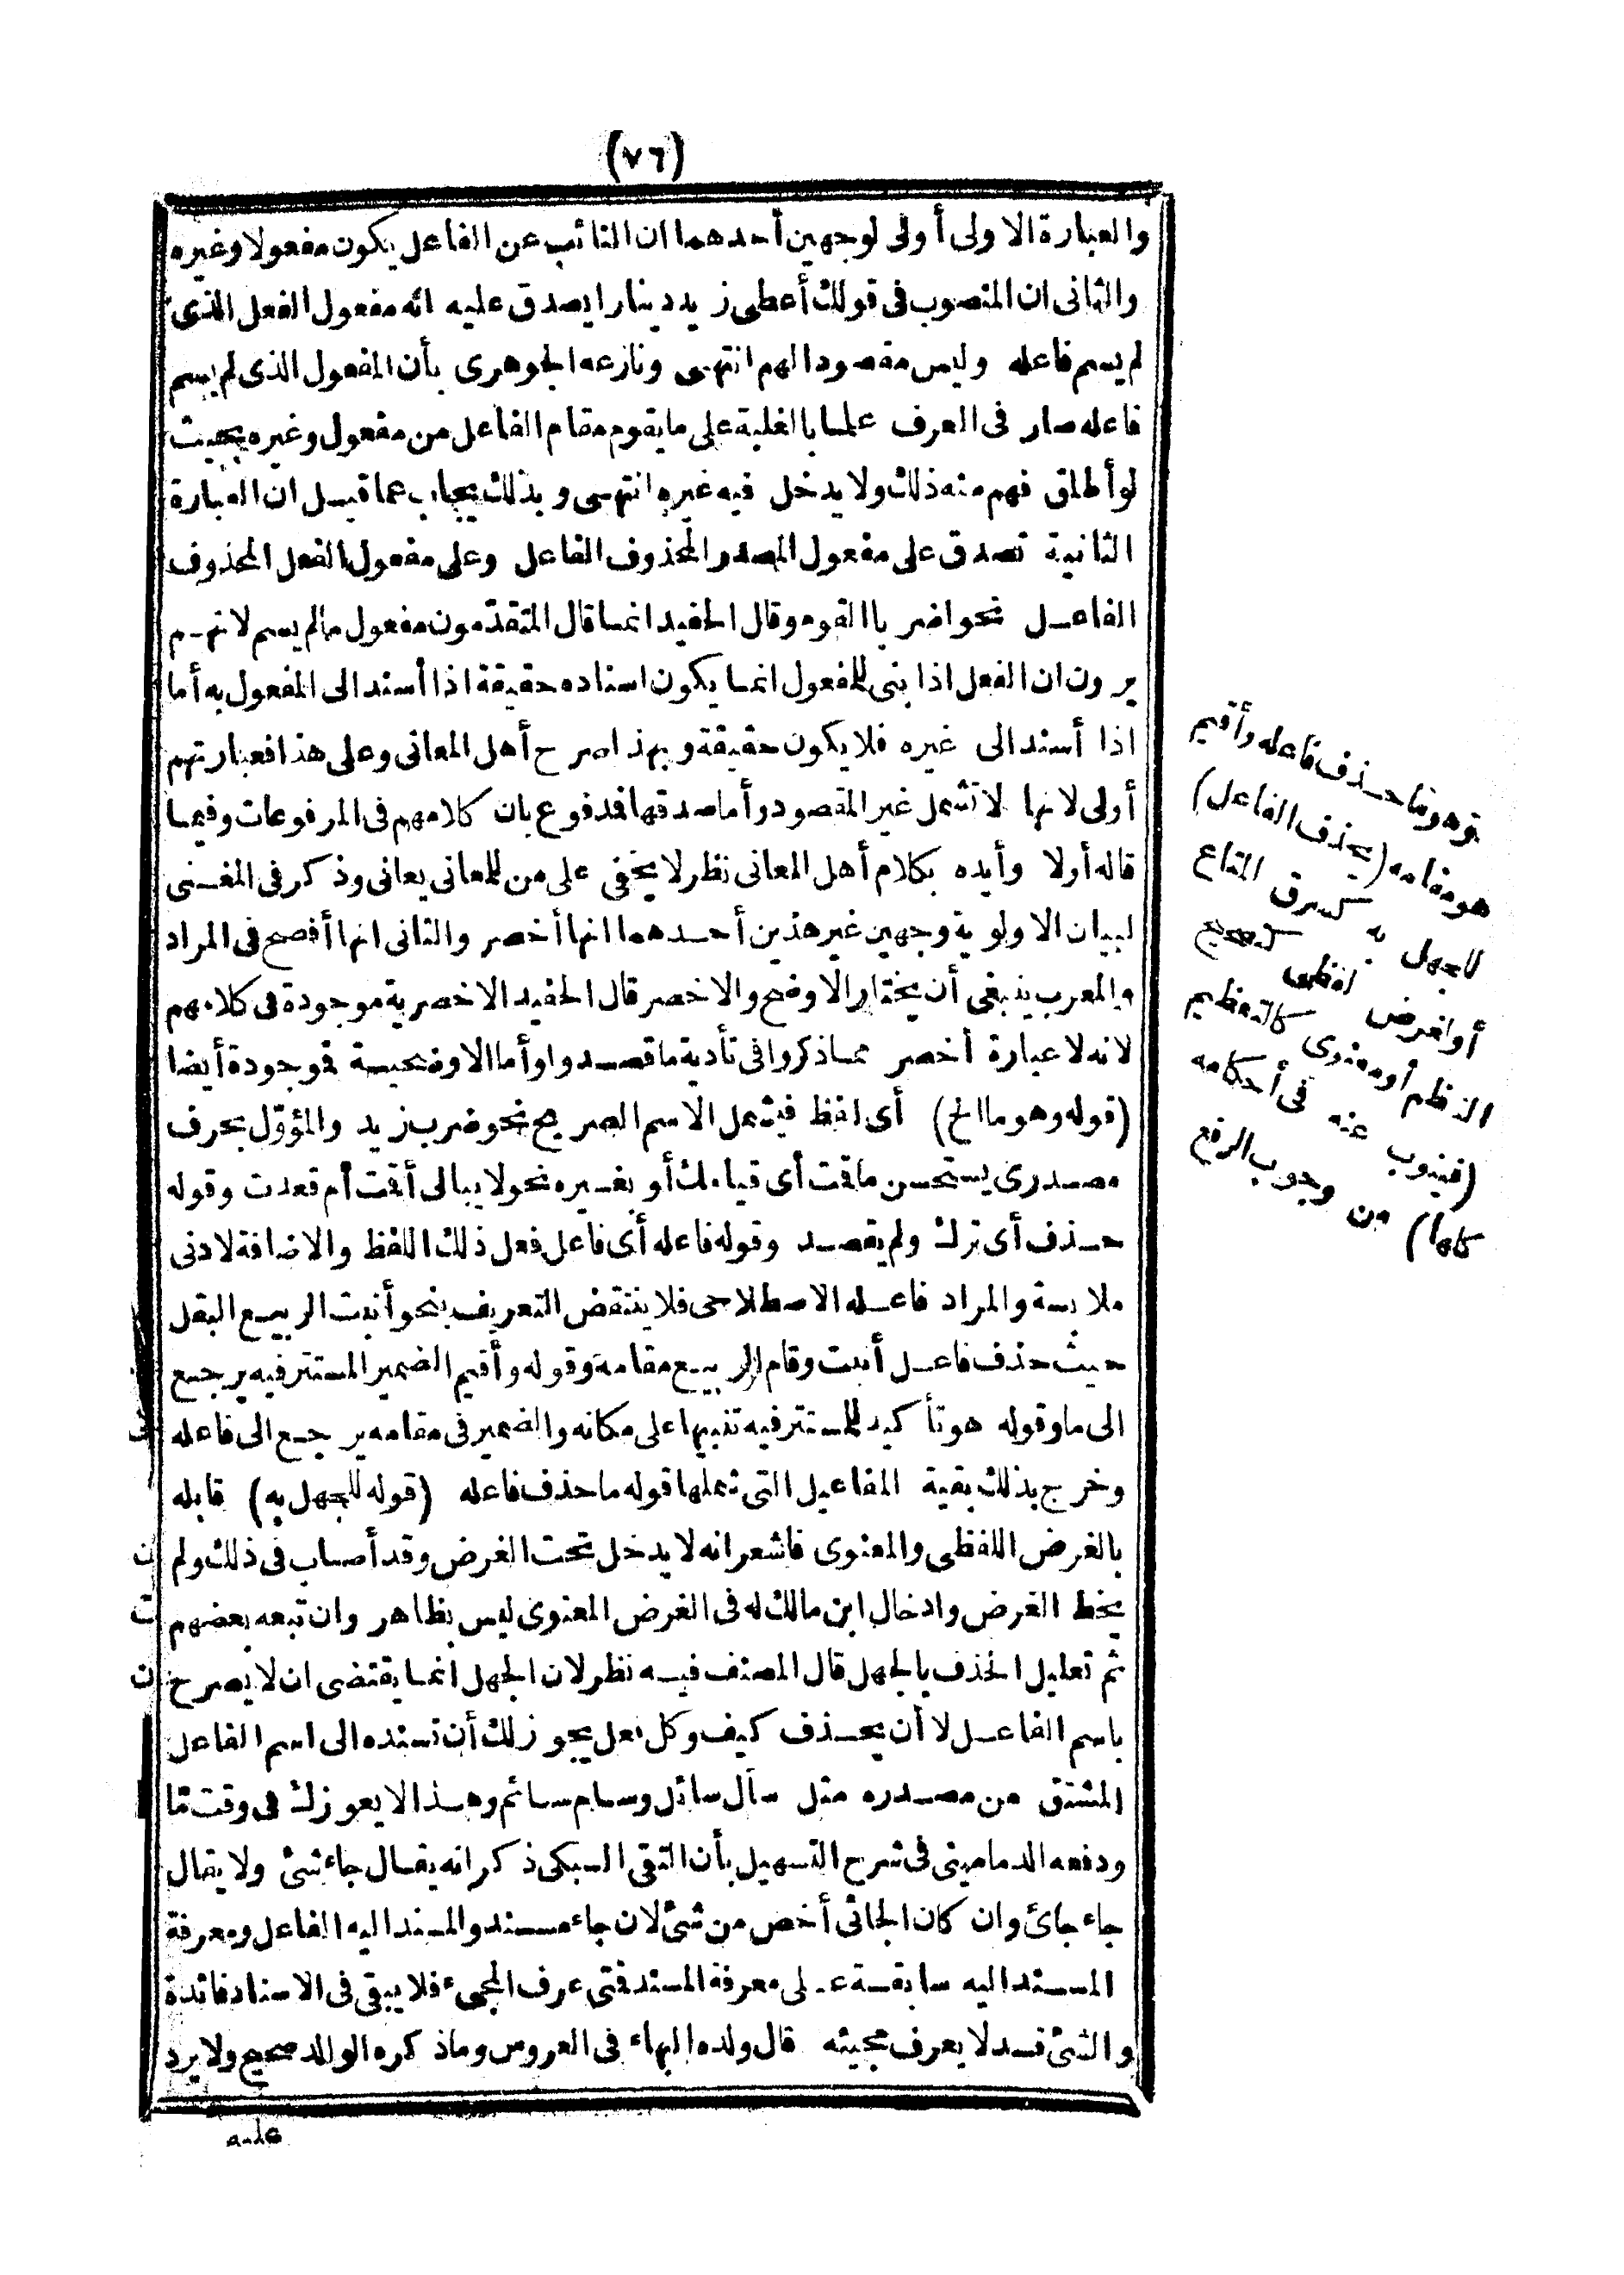 (٧٦)
والعبارة الاولى أولى لوجهين أحدهما ان النائب عن الفاعل يكون مفعولا وغيره
والثانى ان المنصوب فى قولك أعطى زيد دينارا يصدق عليه انه مفعول الفعل الذى
لم يسم فاعله وليس مقصودا لهم انتهى ونازعه الجوهرى بأن المفعول الذى لم يسم
فاعله صار فى العرف علما بالغلبة على ما يقوم مقام الفاعل من مفعول وغيره بحيث
لو أطلق فهم منه ذلك ولا يدخل فيه غيره انتهى وبذلك يجاب عما قيل ان العبارة
الثانية تصدق على مفعول المصدر المحذوف الفاعل وعلى مفعول الفعل المحذوف
الفاعل نحو اضربا القوم وقال الحفيد انما قال المتقدّمون مفعول مالم يسم لانهم
يرون ان الفعل اذا بنى للمفعول انما يكون اسناده حقيقة اذا أسند الى المفعول به أما
اذا أسند الى غيره فلا يكون حقيقة وبهذا صرح أهل المعانى وعلى هذا فعبارتهم
أولى لانها لا تشمل غير المقصود وأما صدقها فمدفوع بان كلامهم فى المرفوعات وفيما
قاله أولا وأيده بكلام أهل المعانى نظر لا يخفى على من للمعانى يعانى وذكر فى المغنى
لبيان الاولوية وجهين غير هذين أحدهما انها أخصر والثانى انها أفصح فى المراد
والمعرب ينبغى أن يختار الاوضح والاخصر قال الحفيد الاخصرية موجودة فى كلامهم
لانه لا عبارة أخصر مما ذكروا فى تأدية ما قصدوا وأما الاوضحية فموجودة أيضا
(قوله وهو ما الخ) أى لفظ فيشمل الاسم الصريح نحو ضرب زيد والمؤوّل بحرف
مصدرى يستحسن ما قمت أى قيامك أو بغيره نحو لا يبالى أقمت أم قعدت وقوله
حذف أى ترك ولم يقصد وقوله فاعله أى فاعل فعل ذلك اللفظ والاضافة لادنى
ملابسة والمراد فاعله الاصطلاحى فلا ينتقض التعريف بنحو أنبت الربيع البقل
حيث حذف فاعل أنبت وقام الربيع مقامه وقوله وأقيم الضمير المستتر فيه يرجع
الى ما وقوله هو تأكيد للمستتر فيه تنبيها على مكانه والضمير فى مقامه يرجع الى فاعله
وخرج بذلك بقية المفاعيل التى شملها قوله ما حذف فاعله (قوله للجهل به) قابله
بالغرض اللفظى والمعنوى فاشعر انه لا يدخل تحت الغرض وقد أصاب فى ذلك ولم
يخط الغرض وادخال ابن مالك له فى الغرض المعنوى ليس بظاهر وان تبعه بعضهم
ثم تعليل الحذف بالجهل قال المصنف فيه نظر لان الجهل انما يقتضى ان لا يصرح
باسم الفاعل لا أن يحذف كيف وكل فعل يجوز لك أن تسنده الى اسم الفاعل
المشتق من مصدره مثل سأل سائل وسام سائم وهذا لا يعوزك فى وقت مّا
ودفعه الدمامينى فى شرح التسهيل بأن التقى السبكى ذكر انه يقال جاء شئ ولا يقال
جاء جائ وان كان الجائى أخص من شئ لان جاء مسند والمسند اليه الفاعل ومعرفة
المسند اليه سابقة على معرفة المسند فمتى عرف المجىء فلا يبقى فى الاسناد فائدة
والشئ قد لا يعرف بمجيئه قال ولده البهاء فى العروس وماذكره الوالد صحيح ولا يرد
عليه
وهو ما حذف فاعله وأقيم
هو مقامه (يحذف الفاعل)
للجهل به كسرق المتاع
أو لغرض لفظى كتصحيح
النظم أو معنوى كالتعظيم
(فينوب عنه فى أحكامه
كلها) من وجوب الرفع